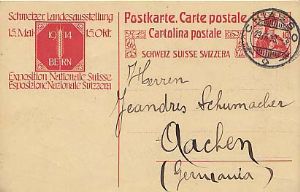 Schweizer Landesausstellung
15. Mai 1914 15. Okt
BERN
Exposition Nationale Suisse
Esposizione Nazionale Svizzera
Postkarte. Carte postale.
Cartolina postale
SCHWEIZ SUISSE SVIZZERA
CHIASSO
Herren
Jeandrus Schumacher
Aachen
(Germania)